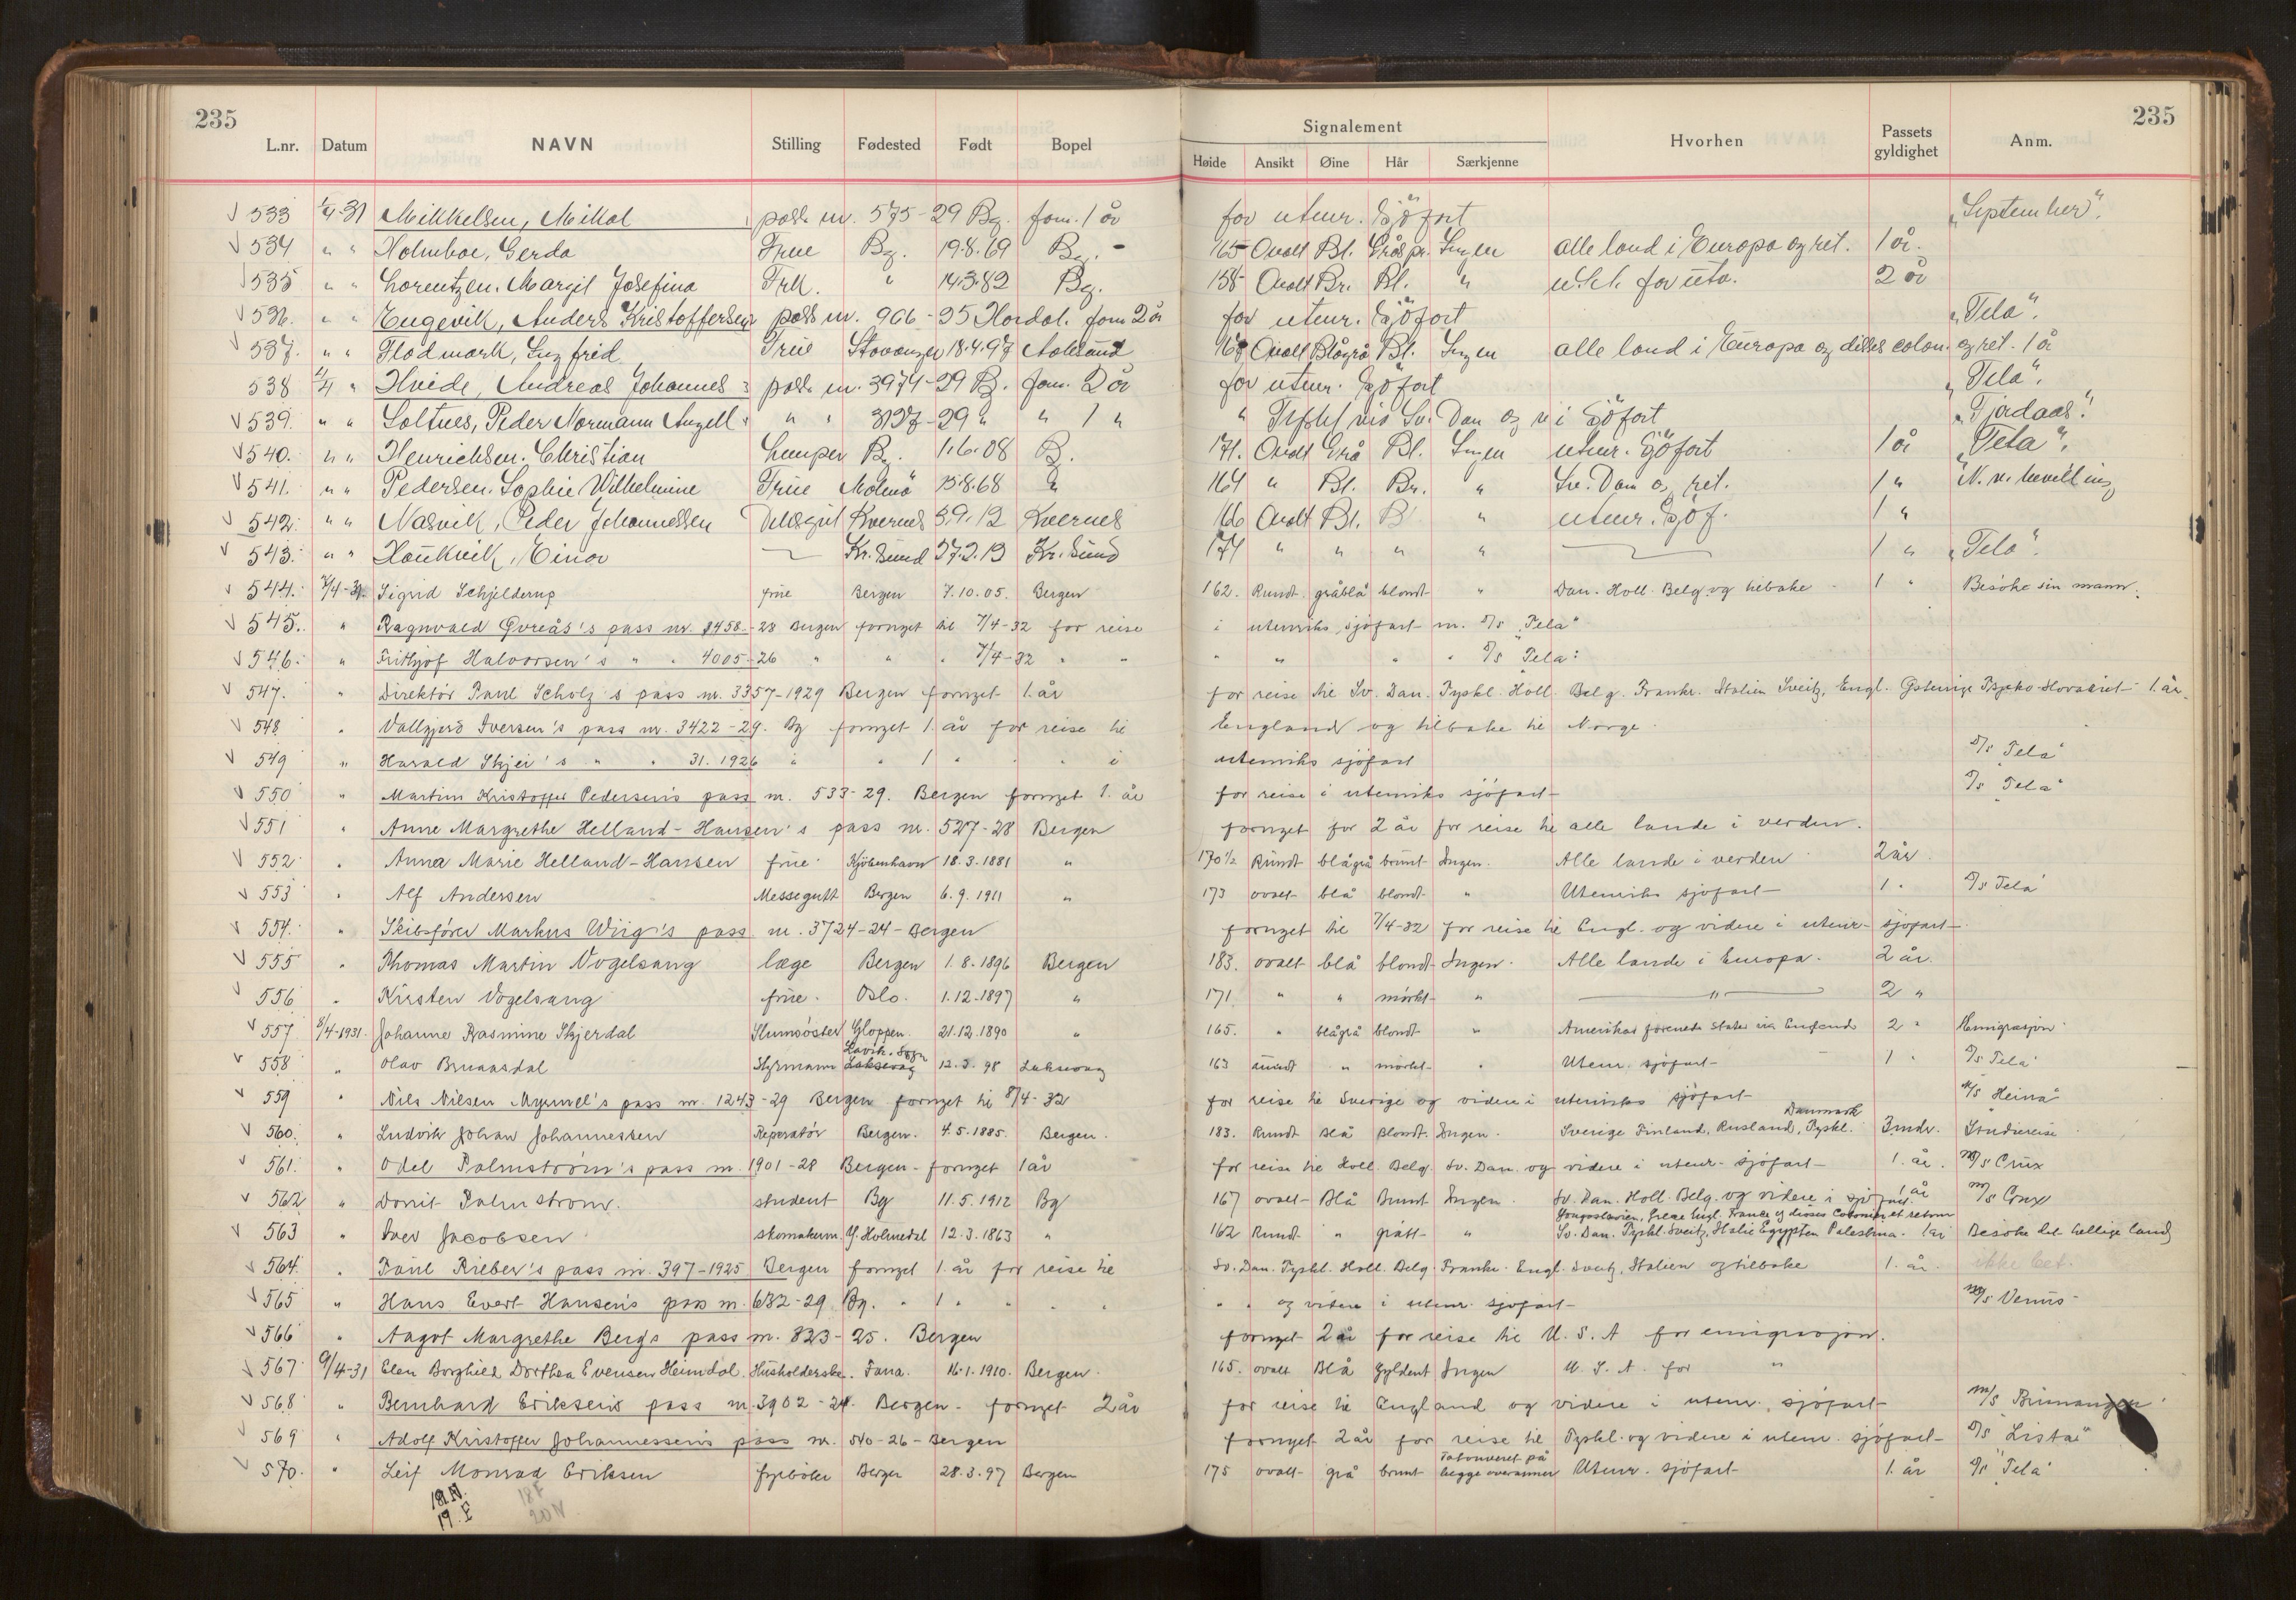 235
235
L.nr. Datum NAVN Stilling Fødested Født Bopel Signalement Hvorhen Passets gyldighet Anm.
Høide Ansikt Øine Hår Særkjenne
533 Mikkelsen, Mikal pass nr. 575-29 Bg. forn. 1 år for utenr. Sjöfart „September".
534 " " Holmboe, Gerda Frue Bg. 19.8.69 Bg. 165 Ovalt Bl. Gråspr. Ingen alle land i Europa og ret. 1 år.
535 " " Lorentzen. Margit Josefina Frk. " 14.3.82 Bg. 158 Ovalt Br. Bl. " 2 år
536. " " Engevik, Anders Kristoffersen pass nr. 906-25 Hordal. forn 2 år for utenr. Sjöfart „Tela".
537. " " Flodmark, Ingfrid Frue Stavanger 18.4.97 Aalesund 167 Ovalt Blågrå Bl. Ingen alle land i Europa og disses colon. og ret. 1 år
538 " Hvide, Andreas Johannes pass nr. 3974-29 B. forn. 2 år for utenr. Sjöfart „Tela".
539. " " Soltnes, Peder Normann Angell " " 3137-29 " " 1 " " Tyskl via Sv. Dan og v i Sjöfart „Fjordaas".
540. " " Henrichsen. Christian Lemper B. 1.6.08 B. 171. Ovalt Grå Bl. Ingen utenr. Sjöfart 1 år „Tela".
541. " " Pedersen. Sophie Wilhelmine Frue Malmö 15.8.68 " 164 " Bl. Br. " Sv. Dan og ret. 1 "
542. " " Nasvik, Peder Johannessen Dæksgut Kvernes 3.9.12 Kvernes 166 Ovalt Bl. Bl " utenr. Sjöf. 1 "
543. " " Haukvik, Einar Kr.Sund 27.2.13 Kr.Sund 174 " " " " 1 " „Tela".
544. 7/4-31. Sigrid Schjelderup frue Bergen 7.10.05. Bergen 162. Rundt. gråblå blondt " Dan. Holl. Belg. og tilbake 1 " Besöke sin mann.
545. " Ragnvald Qvreås's pass nr. 8458-28 Bergen fornyet til 7/4-32 for reise i utenriks sjöfart m. D/S „Tela"
546. " Frithjof Halvorsen's " " 4005-26 " " " 7/4-32 " " " " " " D/S Tela:
547. " Direktör Paul Scholz's pass nr. 3357-1929 Bergen fornyet 1. år for reise til Sv. Dan. Tyskl. Holl. Belg. Frankr. Italien Sveitz, Engl. Österrige Tsjeko-Slovakiet 1. år.
548 " Valgjerd Iversen's pass nr. 3422-29. Bg fornyet 1. år for reise til England og tilbake til Norge.
549 " Harald Skjei's " " 31. 1926 " " 1 " " " i utenriks sjöfart D/S Tela"
550 " Martin Kristoffer Pedersen's pass nr. 533-29. Bergen fornyet 1. år for reise i utenriks sjöfart D/S „Tela"
551 " Anne Margrethe Helland-Hansen's pass nr. 527-28 Bergen fornyet for 2 år for reise til alle lande i verden.
552 " Anna Marie Helland-Hansen frue Kjöbenhavn 18.3.1881 " 170½ Rundt blågrå brunt Ingen. Alle lande i verden 2 år.
553 " Alf Andersen Messegutt Bergen 6.9.1911 " 173 ovalt blå blondt " Utenriks sjöfart 1 " D/S Tela"
554. " Skibsförer Markus Wiig's pass nr. 3724-24-Bergen fornyet til 7/4-32 for reise til Engl. og videre i utenr. sjöfart
555 " Thomas Martin Vogelsang læge Bergen 1.8.1896 Bergen 183. ovalt blå blondt Ingen. Alle lande i Europa. 2 år.
556 " Kirsten Vogelsang frue. Oslo. 1.12.1897 " 171. " " mörkt " " 2 "
557. 8/4-1931. Johanne Rasmine Skjerdal Gloppen. 21.12.1890 " 165. " blågrå blondt " Amerikas forenede stater via England 2 " Emigrasjon
558 " Olav Brunsdal Styrmann Lavik. Sogn Laksevåg 12.3.98 Laksevåg 163 rundt " mörkt " Utenr. sjöfart 1 " D/S Tela"
559 " Nils Nilsen pass nr. 1243-29 Bergen fornyet til 8/4-32 for reise til Sverige og videre i utenriks sjöfart M/S Heina"
560. " Ludvik Johan Johannessen Reperatör Bergen. 4.5.1885. Bergen. 183. Rundt Blå Blondt. Ingen. Sverige Finland, Rusland, Tyskl. Danmark 3 mdr. Studiereise
561. " Odel Palmström's pass nr. 1901-28 Bergen-fornyet 1 år for reise til Holl. Belg. Sv. Dan. og videre i utenr. sjöfart 1. år. M/S Crux
562 " Dorrit Palmström. student Bg 11.5.1912 Bg 167 ovalt Blå Brunt Ingen. Sv. Dan. Holl. Belg. og videre i sjöfart. 1 år M/S Crux
563 " Iver Jacobsen skomakerm. Y. Holmedal 12.3.1863 " 162 Rundt " grått " Jougoslavien, Engl. France og disses Colonier et retour Sv. Dan. Tyskl. Sveitz, Italie Egypten Palestina. 1 år Besöke det hellige land
564. " Paul Rieber's pass nr. 397-1925 Bergen fornyet 1. år for reise til Sv. Dan. Tyskl. Holl. Belg. Frankr. Engl. Sveitz, Italien og tilbake 1. år. ikke bet.
565 " Hans Evert Hansen's pass nr. 632-29 Bg. " 1 " " " " " " og videre i utenr. sjöfart M/S Venus
566 " Aagot Margrethe Berg's pass nr. 823-25. Bergen fornyet 2 år for reise til U.S.A for emigrasjon.
567 9/4-31 Elen Borghild Dorthea Evensen Heimdal. Husholderske. Fana. 16.1.1910. Bergen. 165. ovalt Blå Gyldent Ingen U.S.A. for "
568 " Bernhard Eriksen's pass nr. 3902-24. Bergen-fornyet 2 år for reise til England og videre i utenr. sjöfart M/S Brimanger
569 " Adolf Kristoffer Johannessen's pass nr. 510-26-Bergen fornyet 2 år for reise til Tyskl. og videre i utenr. sjöfart D/S „Lista"
570. " Leif Monrad Eriksen fyrböter Bergen 28.3.97 Bergen 175 ovalt grå brunt Tatoveret på begge overarmer Utenr. sjöfart 1. år D/S „Tela"
18 N. 18 F
19. F 20 N